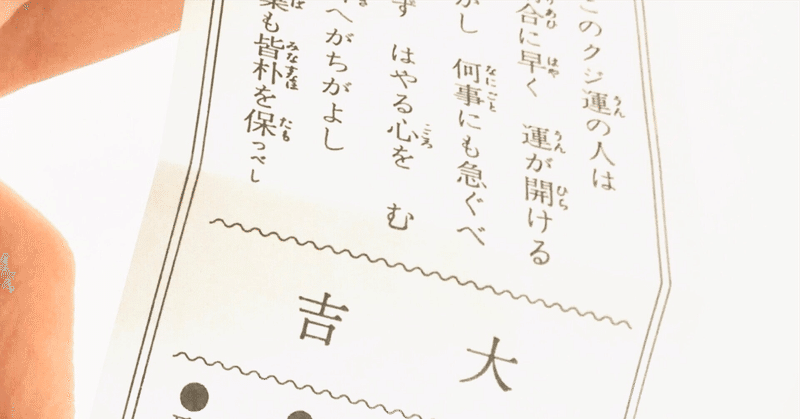 このクジ運の人は
合に早く 運が開ける
がし 何事にも急ぐべ
ず はやる心を む
へがちがよし
葉も皆朴を保つべし
大吉